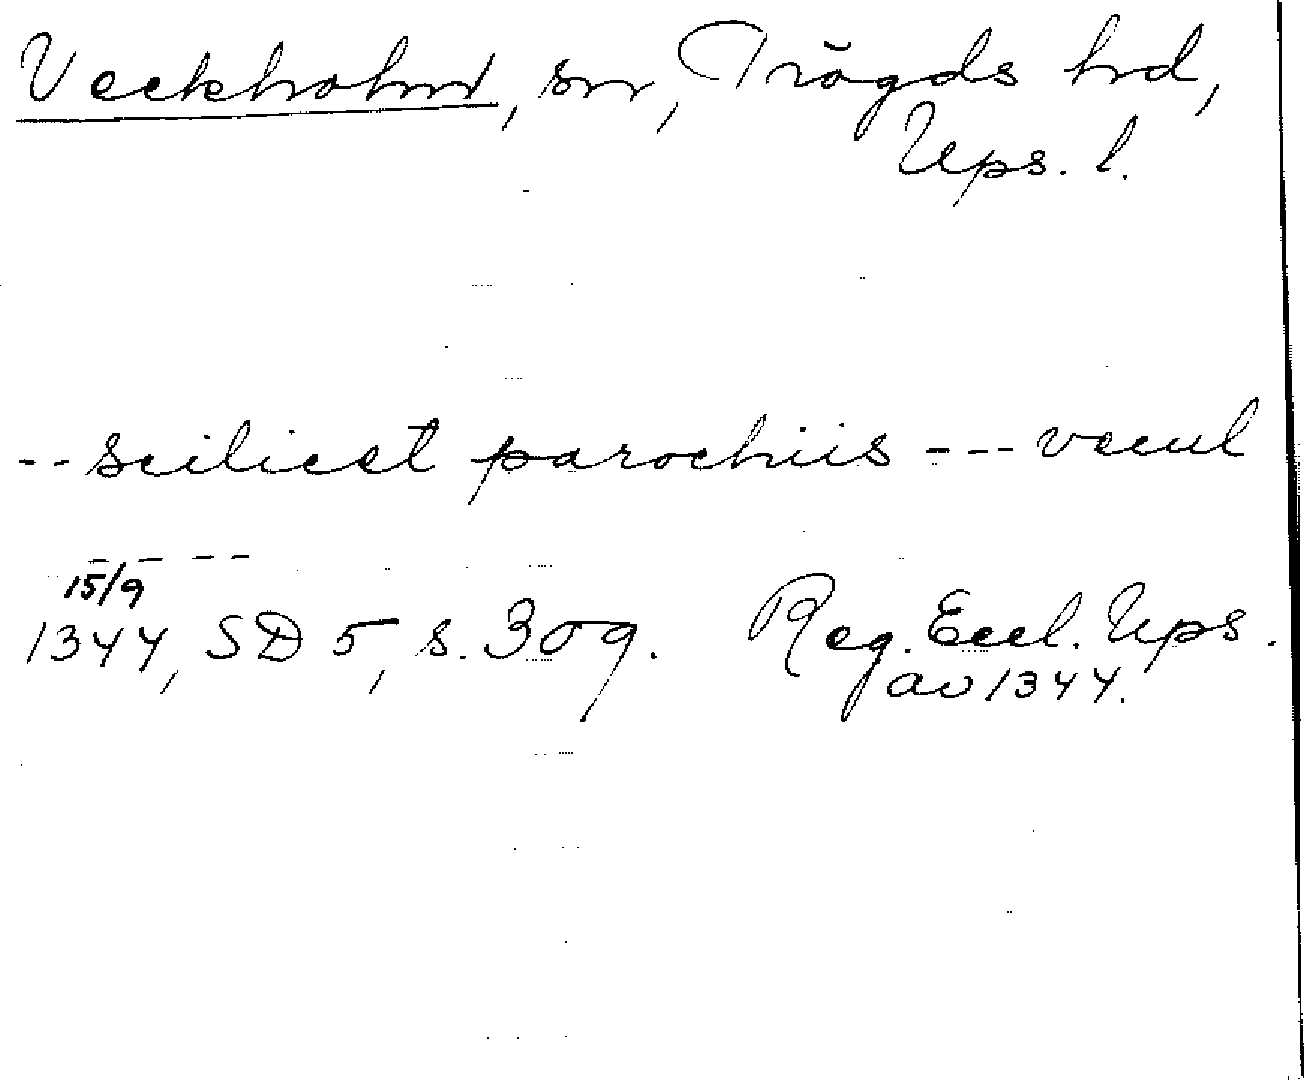 Veckholm, sn, Trögds hd,
Ups. l.
-- scilicet parochiis --- vecul
-- --
15/9
1344, SD 5, s. 309. Reg. Eccl. Ups.
av 1344.